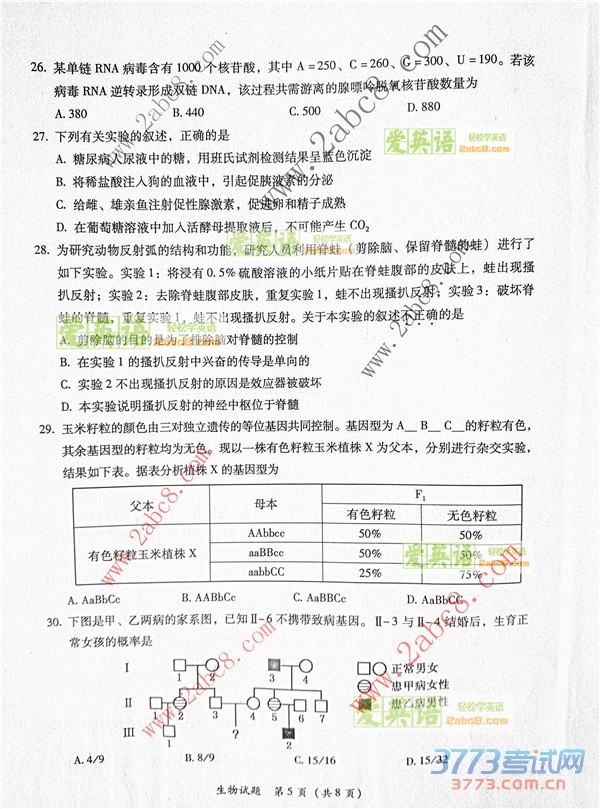 26. 某单链 RNA 病毒含有 1000 个核苷酸，其中 A=250、C=260、G=300、U=190。若该
病毒 RNA 逆转录形成双链 DNA，该过程共需游离的腺嘌呤脱氧核苷酸数量为
A. 380 B. 440 C. 500 D. 880
27. 下列有关实验的叙述，正确的是
A. 糖尿病人尿液中的糖，用班氏试剂检测结果呈蓝色沉淀
B. 将稀盐酸注入狗的血液中，引起促胰液素的分泌
C. 给雌、雄亲鱼注射促性腺激素，促进卵和精子成熟
D. 在葡萄糖溶液中加入活酵母提取液后，不可能产生 CO₂
28. 为研究动物反射弧的结构和功能，研究人员利用脊蛙（剪除脑、保留脊髓的蛙）进行了
如下实验。实验 1：将浸有 0.5%硫酸溶液的小纸片贴在脊蛙腹部的皮肤上，蛙出现搔
扒反射；实验 2：去除脊蛙腹部皮肤，重复实验 1，蛙不出现搔扒反射；实验 3：破坏脊
蛙的脊髓，重复实验 1，蛙不出现搔扒反射。关于本实验的叙述不正确的是
A. 剪除脑的目的是为了排除脑对脊髓的控制
B. 在实验 1 的搔扒反射中兴奋的传导是单向的
C. 实验 2 不出现搔扒反射的原因是效应器被破坏
D. 本实验说明搔扒反射的神经中枢位于脊髓
29. 玉米籽粒的颜色由三对独立遗传的等位基因共同控制。基因型为 A__ B__ C__的籽粒有色，
其余基因型的籽粒均为无色。现以一株有色籽粒玉米植株 X 为父本，分别进行杂交实验，
结果如下表。据表分析植株 X 的基因型为
父本 母本 F₁
有色籽粒 无色籽粒
有色籽粒玉米植株 X AAbbcc 50% 50%
aaBBcc 50% 50%
aabbCC 25% 75%
A. AaBbCc B. AABbCc C. AaBBCc D. AaBbCC
30. 下图是甲、乙两病的家系图，已知Ⅱ-6 不携带致病基因。Ⅱ-3 与Ⅱ-4 结婚后，生育正
常女孩的概率是
Ⅰ 1 2 3 4 正常男女
患甲病女性
Ⅱ 1 2 3 4 5 6 7 患乙病男性
Ⅲ 1 ? 2
A. 4/9 B. 8/9 C. 15/16 D. 15/32
生物试题 第 5 页（共 8 页）
www.2abc8.com
www.2abc8.com
www.2abc8.com
www.2abc8.com
爱英语 轻松学英语 2abc8.com
爱英语 轻松学英语 2abc8.com
爱英语 轻松学英语 2abc8.com
爱英语 轻松学英语 2abc8.com
爱英语 轻松学英语 2abc8.com
3773考试网
www.3773.com.cn